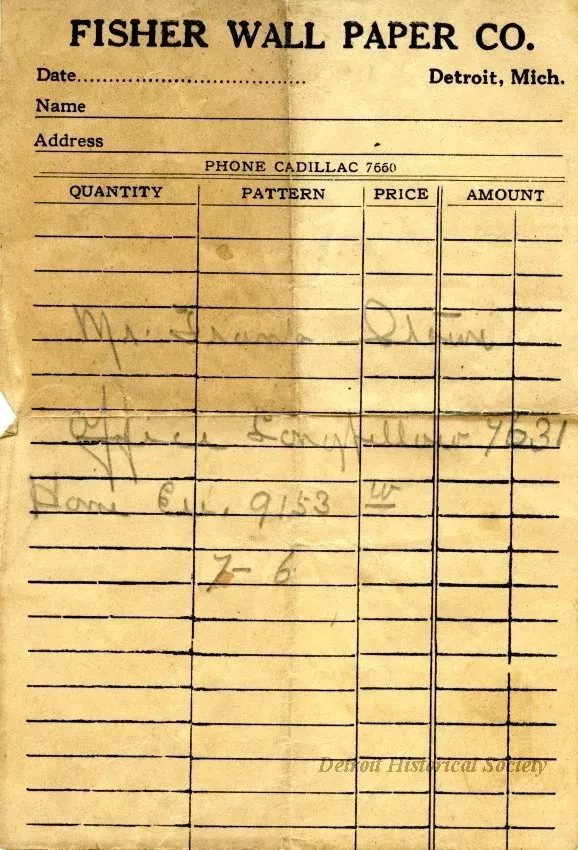 FISHER WALL PAPER CO.
Date.......................................... Detroit, Mich.
Name
Address
PHONE CADILLAC 7660
QUANTITY PATTERN PRICE AMOUNT
Mr.
Office Longfellow 7531
9153 W
7-6
Detroit Historical Society